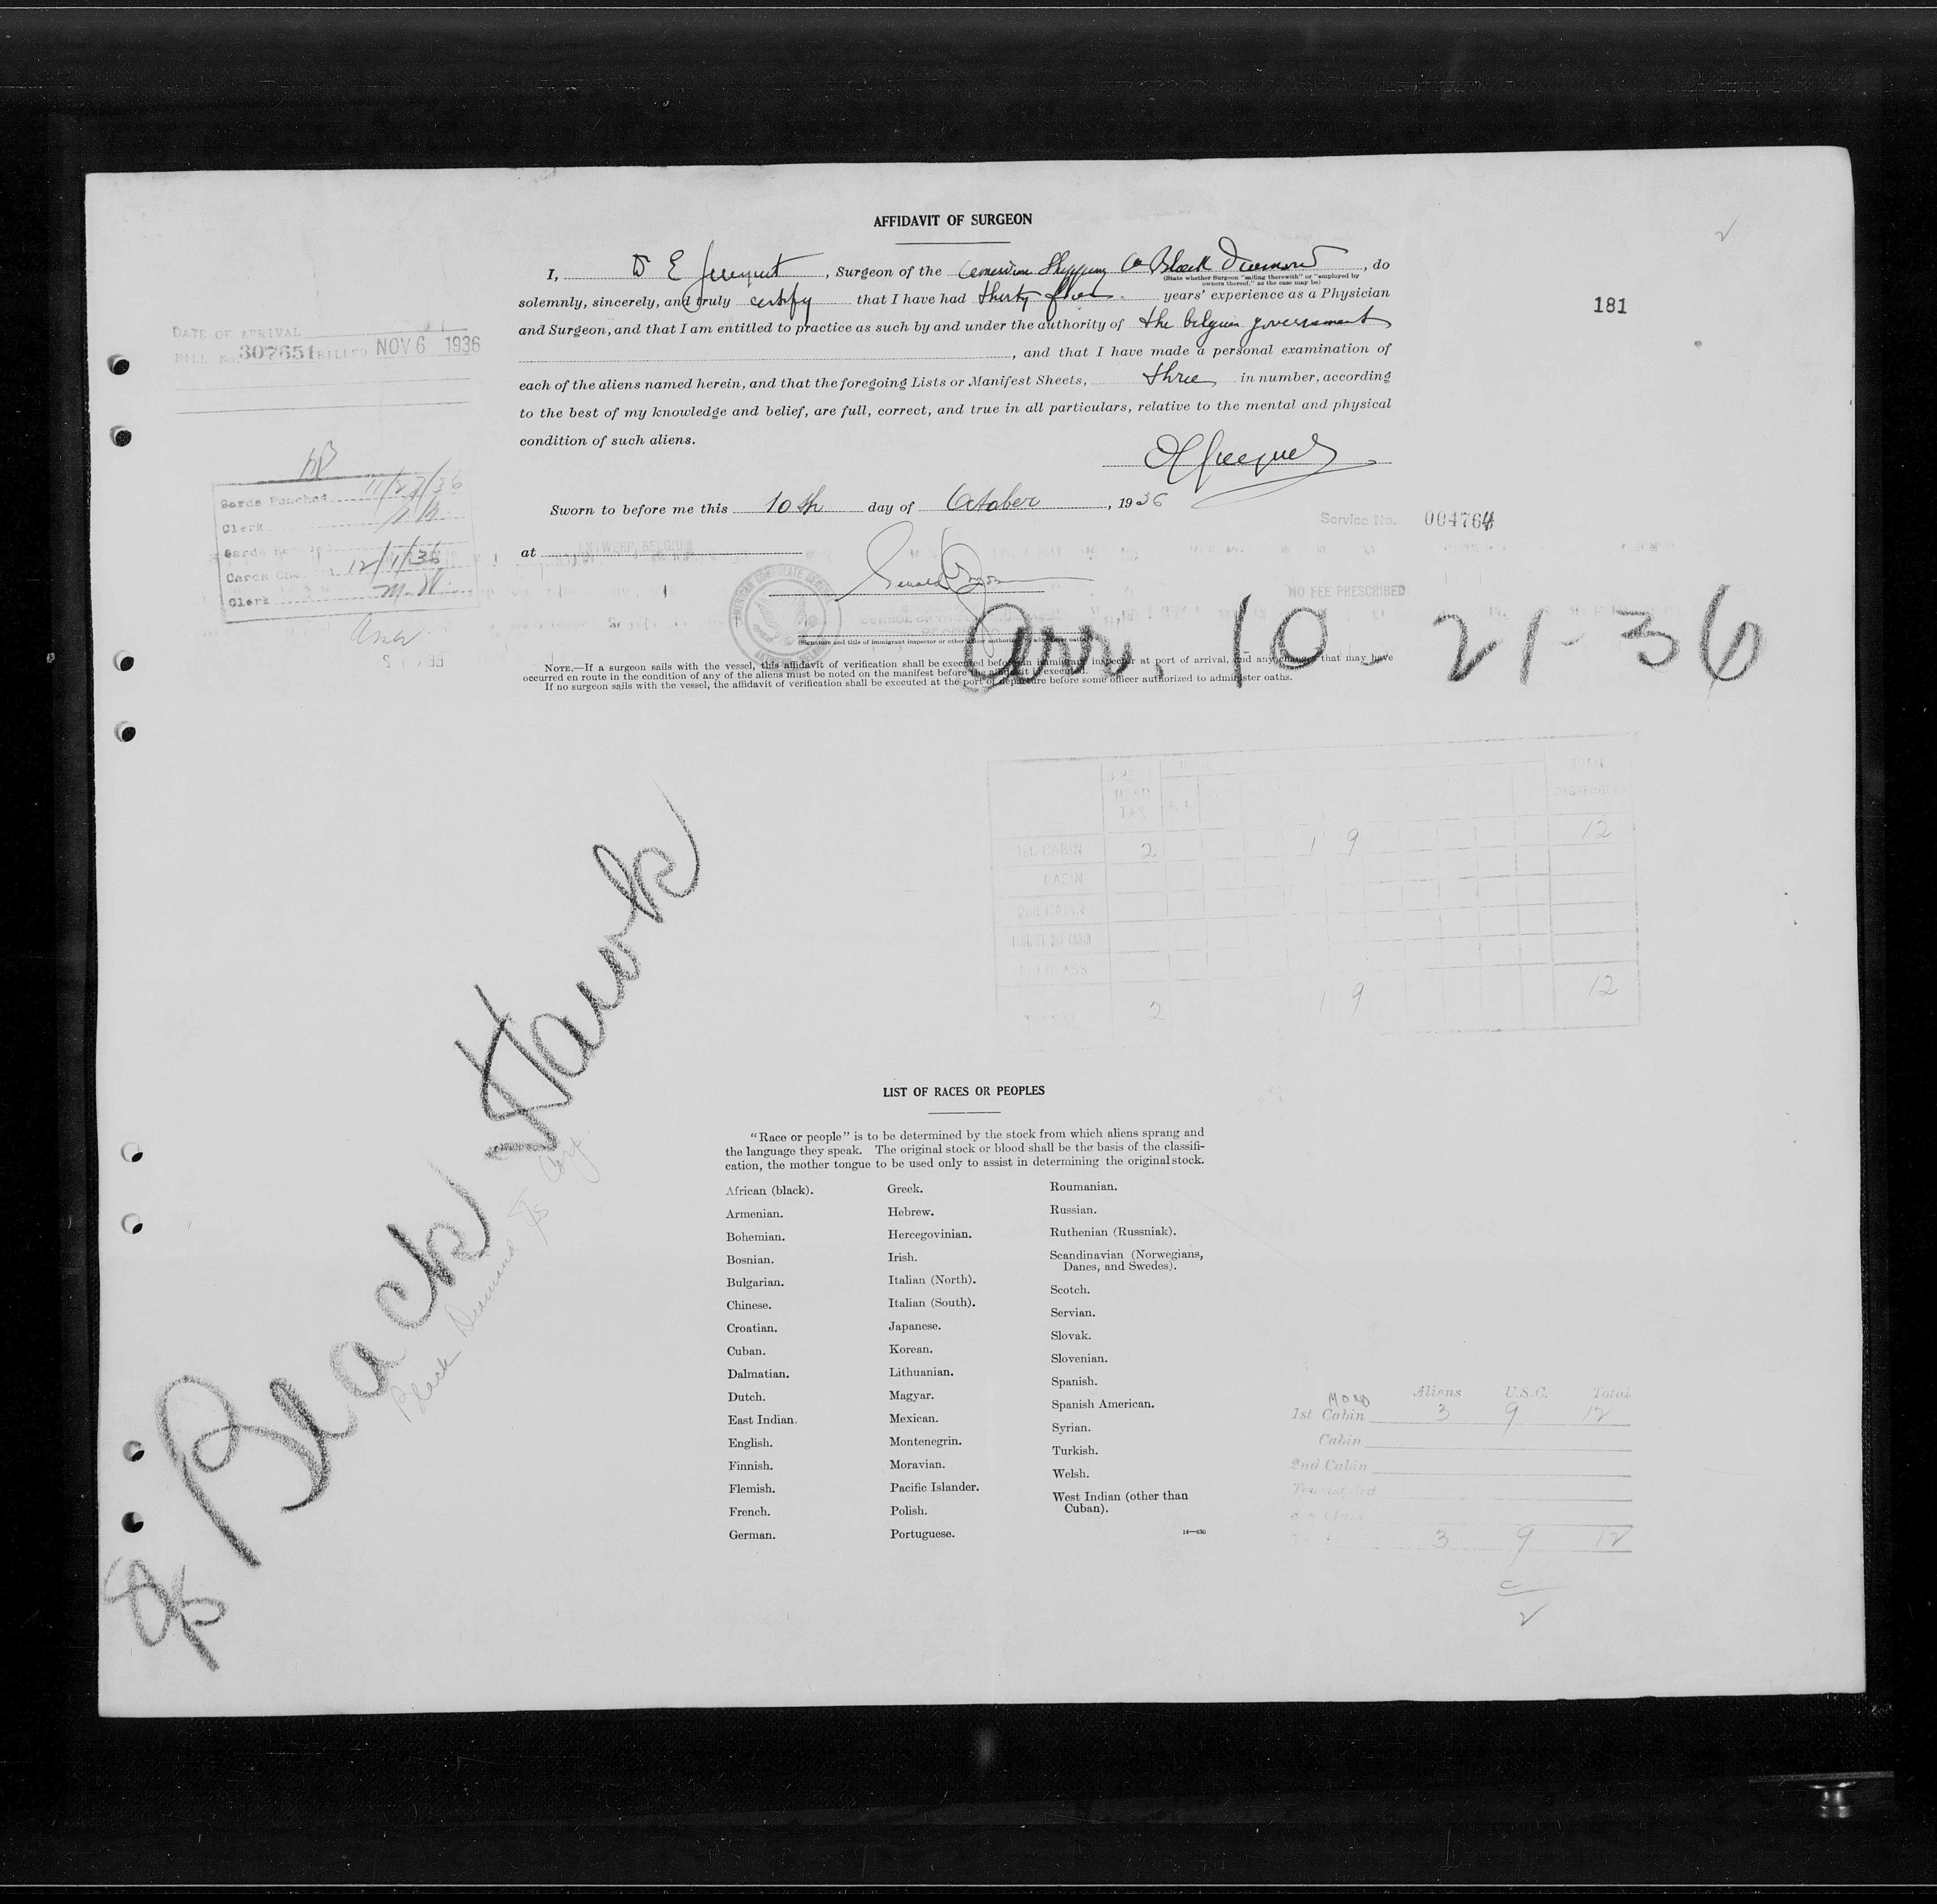 AFFIDAVIT OF SURGEON
I, D E , Surgeon of the Shipping Co Black Diamond, do
(State whether Surgeon "sailing therewith" or "employed by
owners thereof," as the case may be)
solemnly, sincerely, and truly certify that I have had thirty years' experience as a Physician
and Surgeon, and that I am entitled to practice as such by and under the authority of the belgian government
, and that I have made a personal examination of
each of the aliens named herein, and that the foregoing Lists or Manifest Sheets, three in number, according
to the best of my knowledge and belief, are full, correct, and true in all particulars, relative to the mental and physical
condition of such aliens.
Sworn to before me this 10th day of October, 1936
at ANTWERP, BELGIUM
AMERICAN CONSULATE GENERAL
(Signature and title of immigrant inspector or other officer authorized to administer oaths)
NOTE.—If a surgeon sails with the vessel, this affidavit of verification shall be executed before an immigrant inspector at port of arrival, and any change that may have
occurred en route in the condition of any of the aliens must be noted on the manifest before the affidavit is executed.
If no surgeon sails with the vessel, the affidavit of verification shall be executed at the port of departure before some officer authorized to administer oaths.
181
DATE OF ARRIVAL
BILL No. 307651 BILLED NOV 6 1936
Cards Punched 11/27/36
Clerk
Cards Checked 12/1/36
Clerk M.H.
Service No. 004764
NO FEE PRESCRIBED
Arr. 10-21-36
HEAD TAX
TOTAL
PASSENGERS
1st CABIN 2 1 9 12
CABIN
2nd CABIN
TOURIST 3rd CABIN
3rd CLASS
TOTAL 2 1 9 12
S/S Black Hawk
Black Diamond SS Corp.
LIST OF RACES OR PEOPLES
"Race or people" is to be determined by the stock from which aliens sprang and
the language they speak. The original stock or blood shall be the basis of the classifi-
cation, the mother tongue to be used only to assist in determining the original stock.
African (black).
Armenian.
Bohemian.
Bosnian.
Bulgarian.
Chinese.
Croatian.
Cuban.
Dalmatian.
Dutch.
East Indian.
English.
Finnish.
Flemish.
French.
German.
Greek.
Hebrew.
Hercegovinian.
Irish.
Italian (North).
Italian (South).
Japanese.
Korean.
Lithuanian.
Magyar.
Mexican.
Montenegrin.
Moravian.
Pacific Islander.
Polish.
Portuguese.
Roumanian.
Russian.
Ruthenian (Russniak).
Scandinavian (Norwegians,
Danes, and Swedes).
Scotch.
Servian.
Slovak.
Slovenian.
Spanish.
Spanish American.
Syrian.
Turkish.
Welsh.
West Indian (other than
Cuban).
14—630
Aliens U.S.C. Total
1st Cabin 3 9 12
Cabin
2nd Cabin
Tourist 3rd
3rd Class
Total 3 9 12